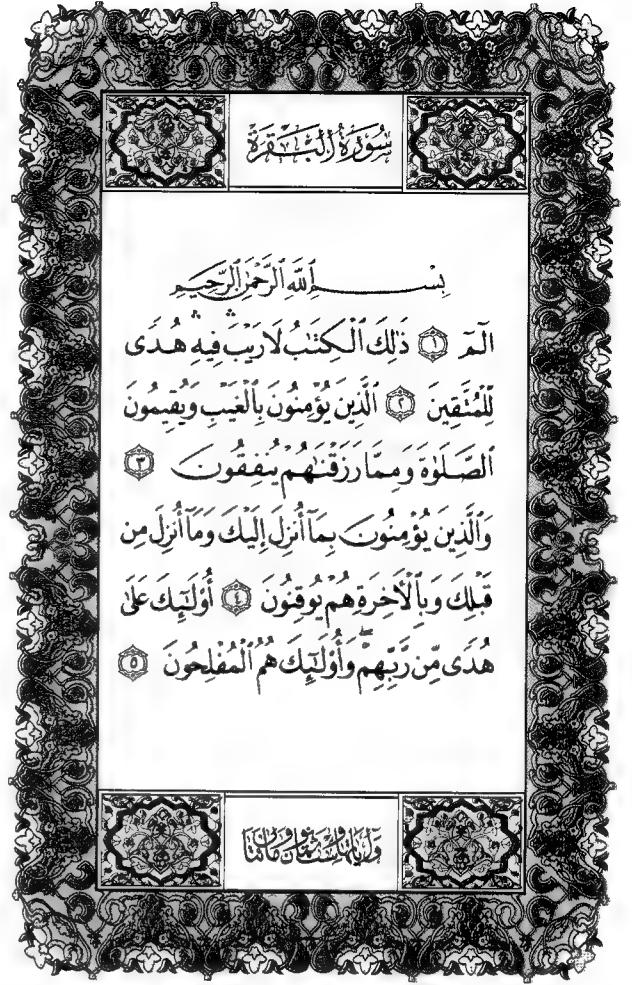 سُورَةُ ٱلْبَقَرَةِ
بِسْمِ ٱللَّهِ ٱلرَّحْمَٰنِ ٱلرَّحِيمِ
الٓمٓ ۝١ ذَٰلِكَ ٱلْكِتَٰبُ لَا رَيْبَ ۛ فِيهِ ۛ هُدًى
لِّلْمُتَّقِينَ ۝٢ ٱلَّذِينَ يُؤْمِنُونَ بِٱلْغَيْبِ وَيُقِيمُونَ
ٱلصَّلَوٰةَ وَمِمَّا رَزَقْنَٰهُمْ يُنفِقُونَ ۝٣
وَٱلَّذِينَ يُؤْمِنُونَ بِمَآ أُنزِلَ إِلَيْكَ وَمَآ أُنزِلَ مِن
قَبْلِكَ وَبِٱلْأَخِرَةِ هُمْ يُوقِنُونَ ۝٤ أُوْلَٰٓئِكَ عَلَىٰ
هُدًى مِّن رَّبِّهِمْ ۖ وَأُوْلَٰٓئِكَ هُمُ ٱلْمُفْلِحُونَ ۝٥